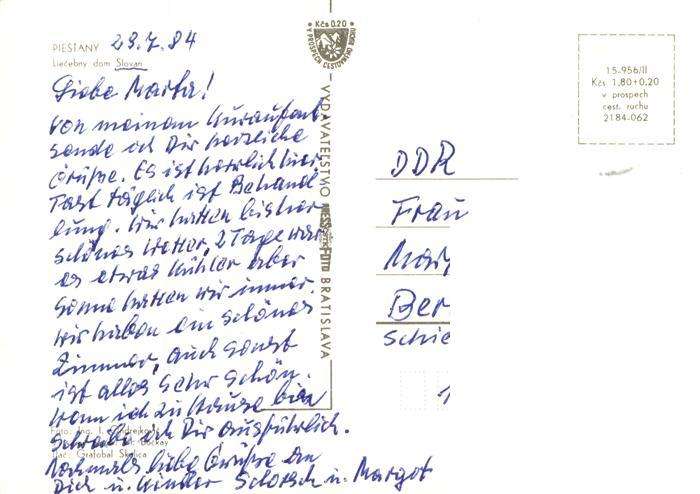 PIEŠŤANY 23.7.84
Liečebný dom Slovan
Liebe Marta!
von meinem Kuraufent
sende ich Dir herzliche
Grüße. Es ist herrlich hier
Fast täglich ist Behand
lung. Wir hatten bisher
schönes Wetter, 2 Tage war
es etwas kühler aber
Sonne hatten wir immer.
Wir haben ein schönes
Zimmer, auch sonst
ist alles sehr schön.
Wenn ich zu Hause bin
schreibe ich Dir ausführlich.
Nochmals liebe Grüße an
Dich u. Kinder Schorsch u. Margot
Foto: Ing. I.
Tlač: Grafobal Skalica
Kčs 0.20
V PROSPECH CESTOVNÉHO RUCHU
VYDAVATEĽSTVO PRESSFOTO BRATISLAVA
15-956/II
Kčs 1,80+0,20
v prospech
cest. ruchu
2184-062
DDR
Frau
Mar
Ber
Schie
1